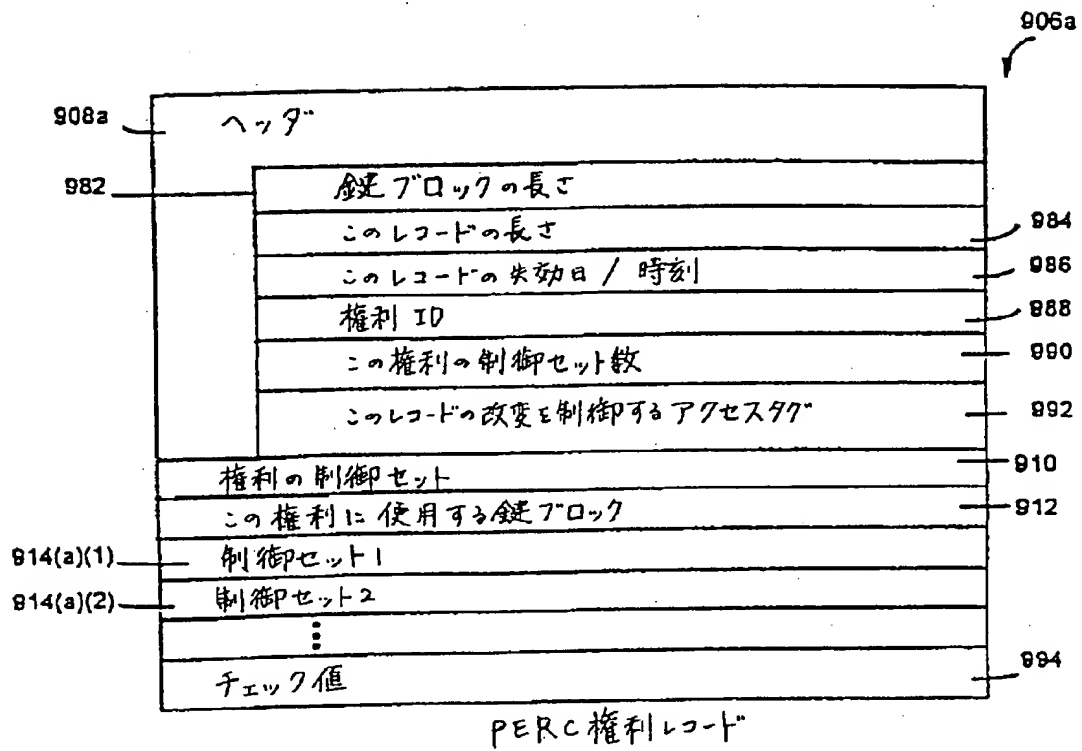 906a
908a ヘッダ
982 鍵ブロックの長さ
このレコードの長さ 984
このレコードの失効日 / 時刻 986
権利 ID 988
この権利の制御セット数 990
このレコードの改変を制御するアクセスタグ 992
権利の制御セット 910
この権利に使用する鍵ブロック 912
914(a)(1) 制御セット1
914(a)(2) 制御セット2
チェック値 994
PERC権利レコード